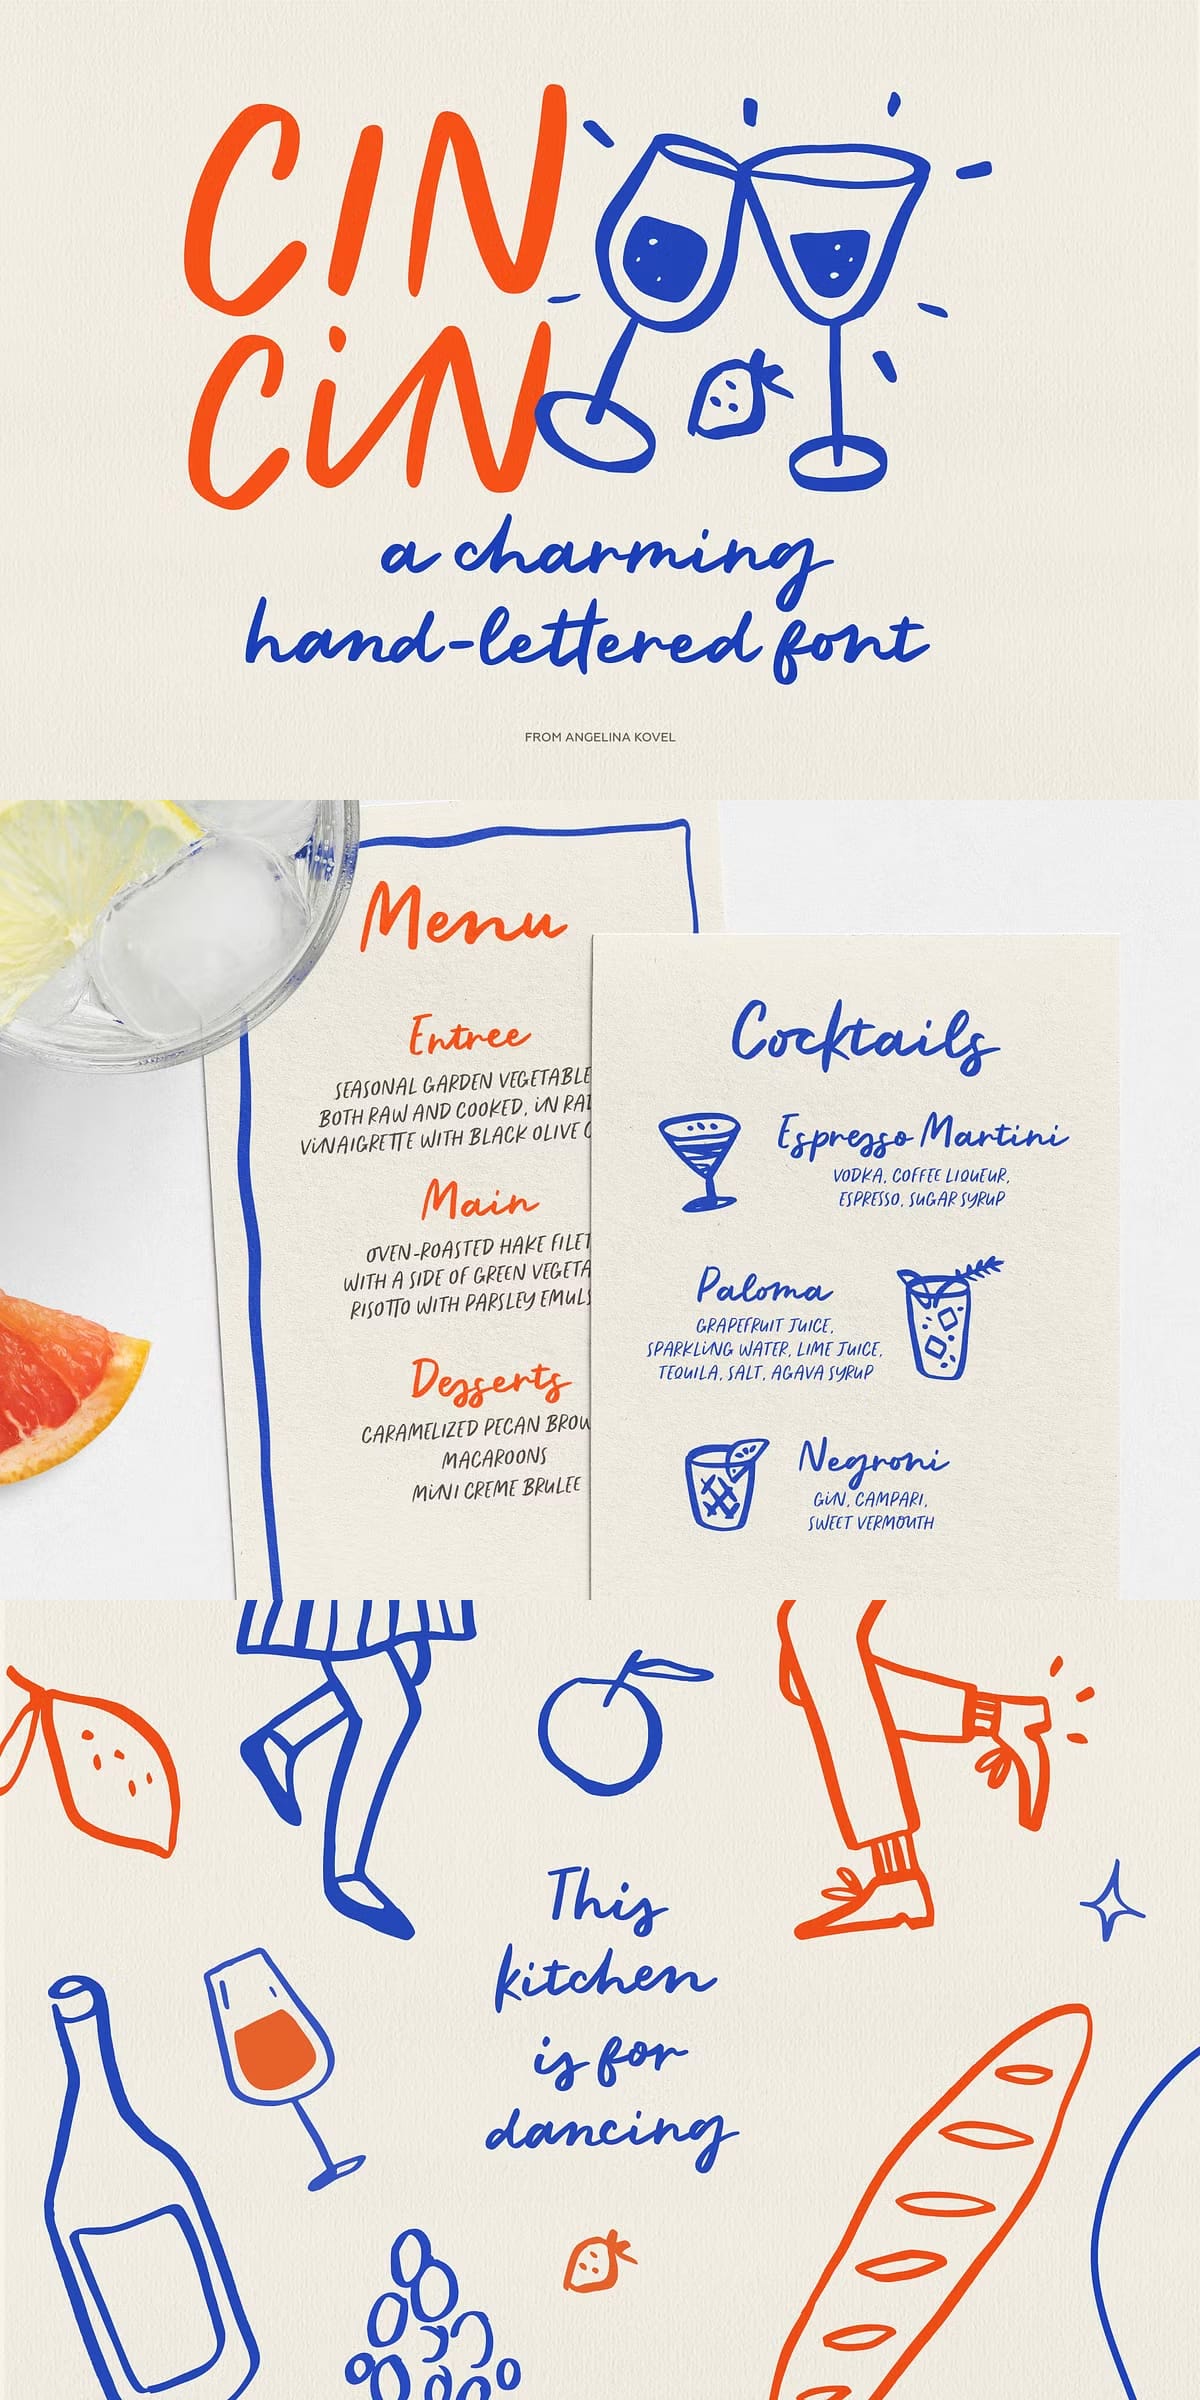 CIN
CiN
a charming
hand-lettered font
FROM ANGELINA KOVEL
Menu
Entree
SEASONAL GARDEN VEGETABLE
BOTH RAW AND COOKED, iN RA
ViNAIGRETTE WITH BLACK OLIVE
Main
OVEN-ROASTED HAKE FILET
WITH A SIDE OF GREEN VEGETA
RISOTTO WITH PARSLEY EMULS
Desserts
CARAMELIZED PECAN BROW
MACAROONS
MiNI CREME BRULEE
Cocktails
Espresso Martini
VODKA, COFFEE LIQUEUR,
ESPRESSO, SUGAR SYRUP
Paloma
GRAPEFRUIT JUICE,
SPARKLiNG WATER, LIME JUICE,
TEQUILA, SALT, AGAVA SYRUP
Negroni
GiN, CAMPARI,
SWEET VERMOUTH
This
kitchen
is for
dancing